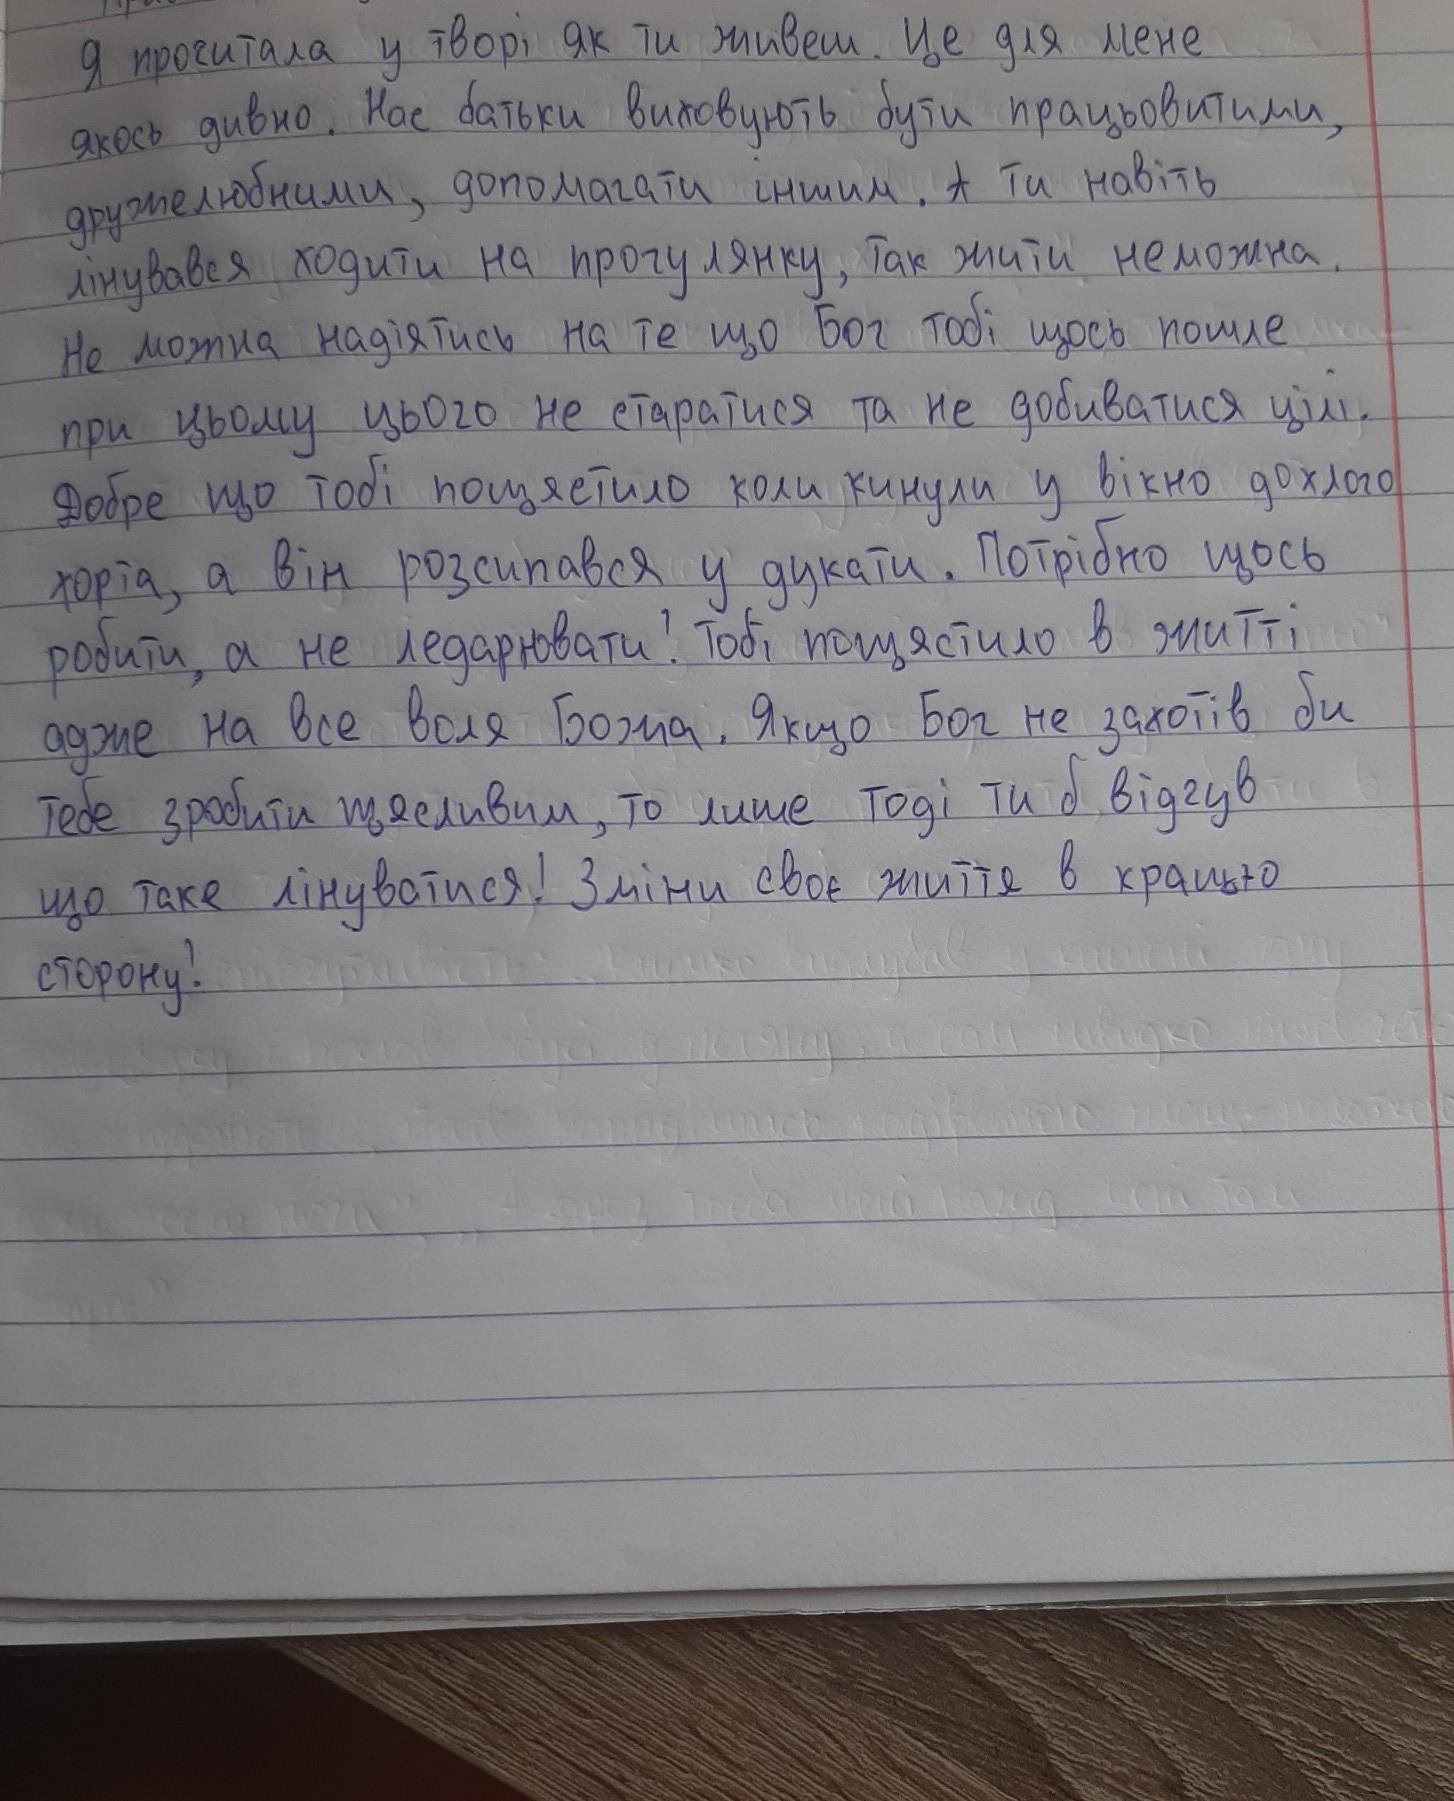 Я прочитала у творі як ти живеш. Це для мене
якось дивно. Нас батьки виховують бути працьовитими,
дружелюбними, допомагати іншим. А ти навіть
лінувався ходити на прогулянку, так жити неможна.
Не можна надіятись на те що Бог тобі щось пошле
при цьому цього не старатися та не добиватися цілі.
Добре що тобі пощястило коли кинули у вікно дохлого
хорта, а він розсипався у дукати. Потрібно щось
робити, а не ледарювати! Тобі пощястило в житті
адже на все воля Божа. Якщо Бог не захотів би
тебе зробити щясливим, то лише тоді ти б відчув
що таке лінуватися! Зміни своє життя в кращю
сторону!